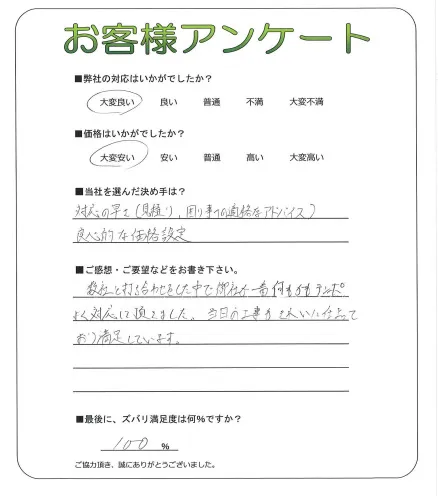 お客様アンケート
■弊社の対応はいかがでしたか？
大変良い 良い 普通 不満 大変不満
■価格はいかがでしたか？
大変安い 安い 普通 高い 大変高い
■当社を選んだ決め手は？
対応の早さ(見積り、困り事への適格なアドバイス)
良心的な価格設定
■ご感想・ご要望などをお書き下さい。
数社と打ち合わせをした中で御社が一番何もかもテンポ
よく対応して頂きました。当日の工事もきれいに仕上って
おり満足しています。
■最後に、ズバリ満足度は何％ですか？
100 %
ご協力頂き、誠にありがとうございました。